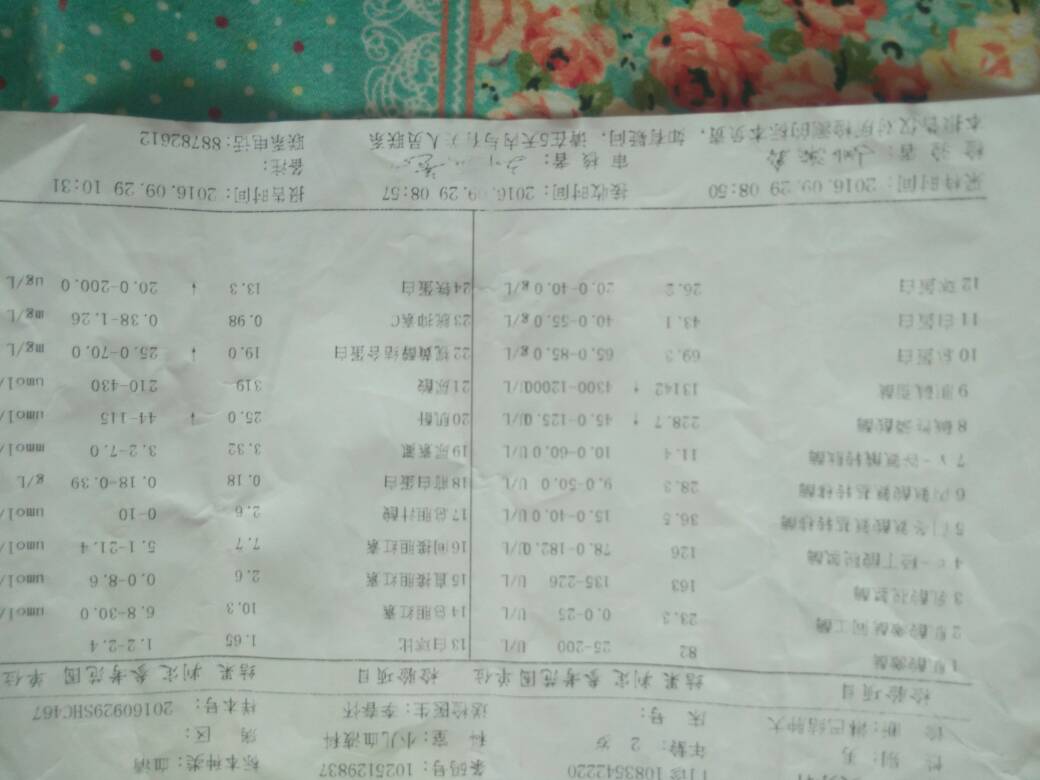 门诊1083542220 条码号：1025129837 标本种类：血清
性 别：男 年龄：2 岁 科 室：小儿血液科 病 区：
诊 断：淋巴结肿大 床 号： 送检医生：李春怀 样本号：20160929SHC467
检验项目 结果 判定 参考范围 单位 检验项目 结果 判定 参考范围 单位
1肌酸激酶 82 25-200 U/L 13白球比 1.65 1.2-2.4
2肌酸激酶同工酶 23.3 0.0-25 U/L 14总胆红素 10.3 6.8-30.0 umol/
3乳酸脱氢酶 163 135-226 U/L 15直接胆红素 2.6 0.0-8.6 umol/
4α-羟丁酸脱氢酶 126 78.0-182.0U/L 16间接胆红素 7.7 5.1-21.4 umol/
5门冬氨酸氨基转移酶 36.5 15.0-40.0 U/L 17总胆汁酸 2.6 0-10 umol/
6丙氨酸氨基转移酶 28.3 9.0-50.0 U/L 18前白蛋白 0.18 0.18-0.39 g/L
7γ-谷氨酰转肽酶 11.4 10.0-60.0 U/L 19尿素氮 3.32 3.2-7.0 mmol/
8碱性磷酸酶 228.7 ↑ 45.0-125.0U/L 20肌酐 25.0 ↓ 44-115 umol/
9胆碱脂酶 13142 ↑ 4300-12000U/L 21尿酸 319 210-430 umol/
10总蛋白 69.3 65.0-85.0g/L 22视黄醇结合蛋白 19.0 ↓ 25.0-70.0 mg/L
11白蛋白 43.1 40.0-55.0g/L 23胱抑素C 0.98 0.38-1.26 mg/L
12球蛋白 26.2 20.0-40.0g/L 24铁蛋白 13.3 ↓ 20.0-200.0 ug/L
采样时间：2016.09.29 08:50 接收时间：2016.09.29 08:57 报告时间：2016.09.29 10:31
检 验 者： 审 核 者： 备注：
本报告仅对所检测的标本负责，如有疑问，请在5天内与有关人员联系 联系电话：88782612